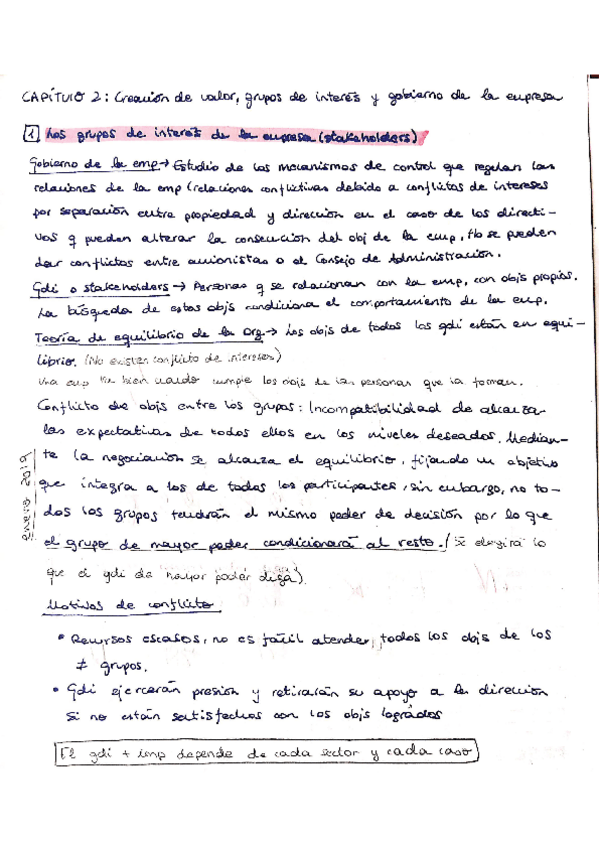 CAPÍTULO 2: Creación de valor, grupos de interés y gobierno de la empresa
1 Los grupos de interés de la empresa (stakeholders)
Gobierno de la emp → Estudio de los mecanismos de control que regulan las
relaciones de la emp (relaciones conflictivas debido a conflictos de intereses
por separación entre propiedad y dirección en el caso de los directi-
vos q pueden alterar la consecución del obj de la emp. Tb se pueden
dar conflictos entre accionistas o el Consejo de Administración.
Gdi o stakeholders → Personas q se relacionan con la emp, con objs propios.
La búsqueda de estos objs condiciona el comportamiento de la emp.
Teoría de equilibrio de la org → Los objs de todos los gdi están en equi-
librio. (No existen conflicto de intereses)
Una emp va bien cuando cumple los objs de las personas que la forman.
Conflicto de objs entre los grupos: Incompatibilidad de alcanza-
las expectativas de todos ellos en los niveles deseados. Median-
te la negociación se alcanza el equilibrio, fijando un objetivo
que integra a los de todos los participantes, sin embargo, no to-
dos los grupos tendrán el mismo poder de decisión por lo que
el grupo de mayor poder condicionará al resto. (Se elegirá lo
que el gdi de mayor poder diga).
enero 2019
Motivos de conflicto
• Recursos escasos, no es fácil atender todos los objs de los
≠ grupos.
• Gdi ejercerán presión y retirarán su apoyo a la dirección
si no están satisfechos con los objs logrados
El gdi + imp depende de cada sector y cada caso